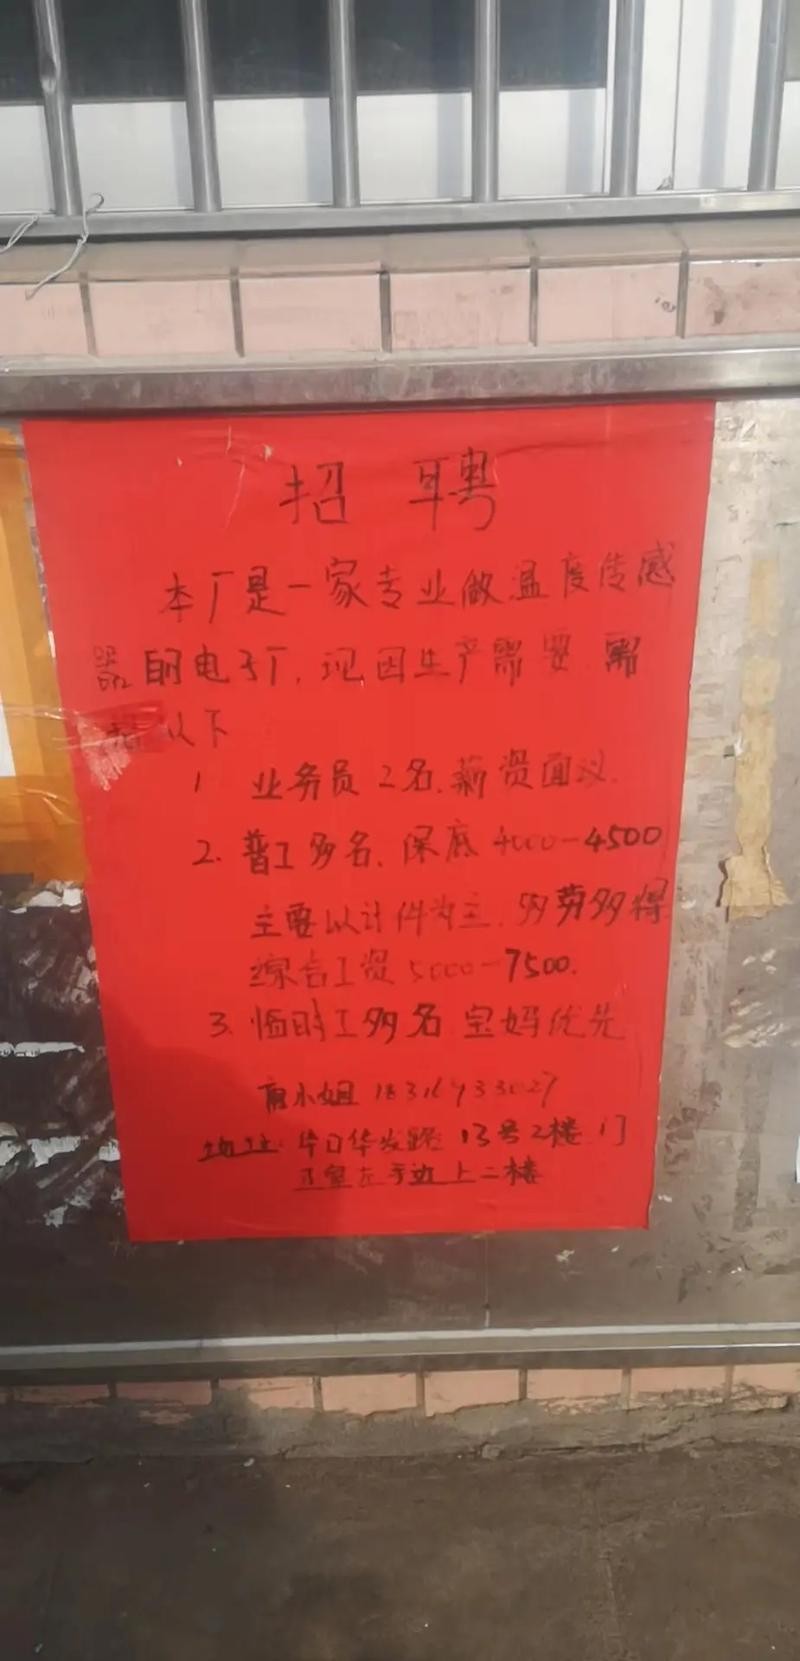 招 聘
本厂是一家专业做温度传感
器的电子厂,现因生产需要,需
以下
1 业务员2名,薪资面议.
2. 普工多名、保底4000-4500
主要以计件为主,多劳多得
综合工资5000-7500.
3. 临时工多名 宝妈优先
小姐
地址: 华口华发路13号2楼
左手边上二楼